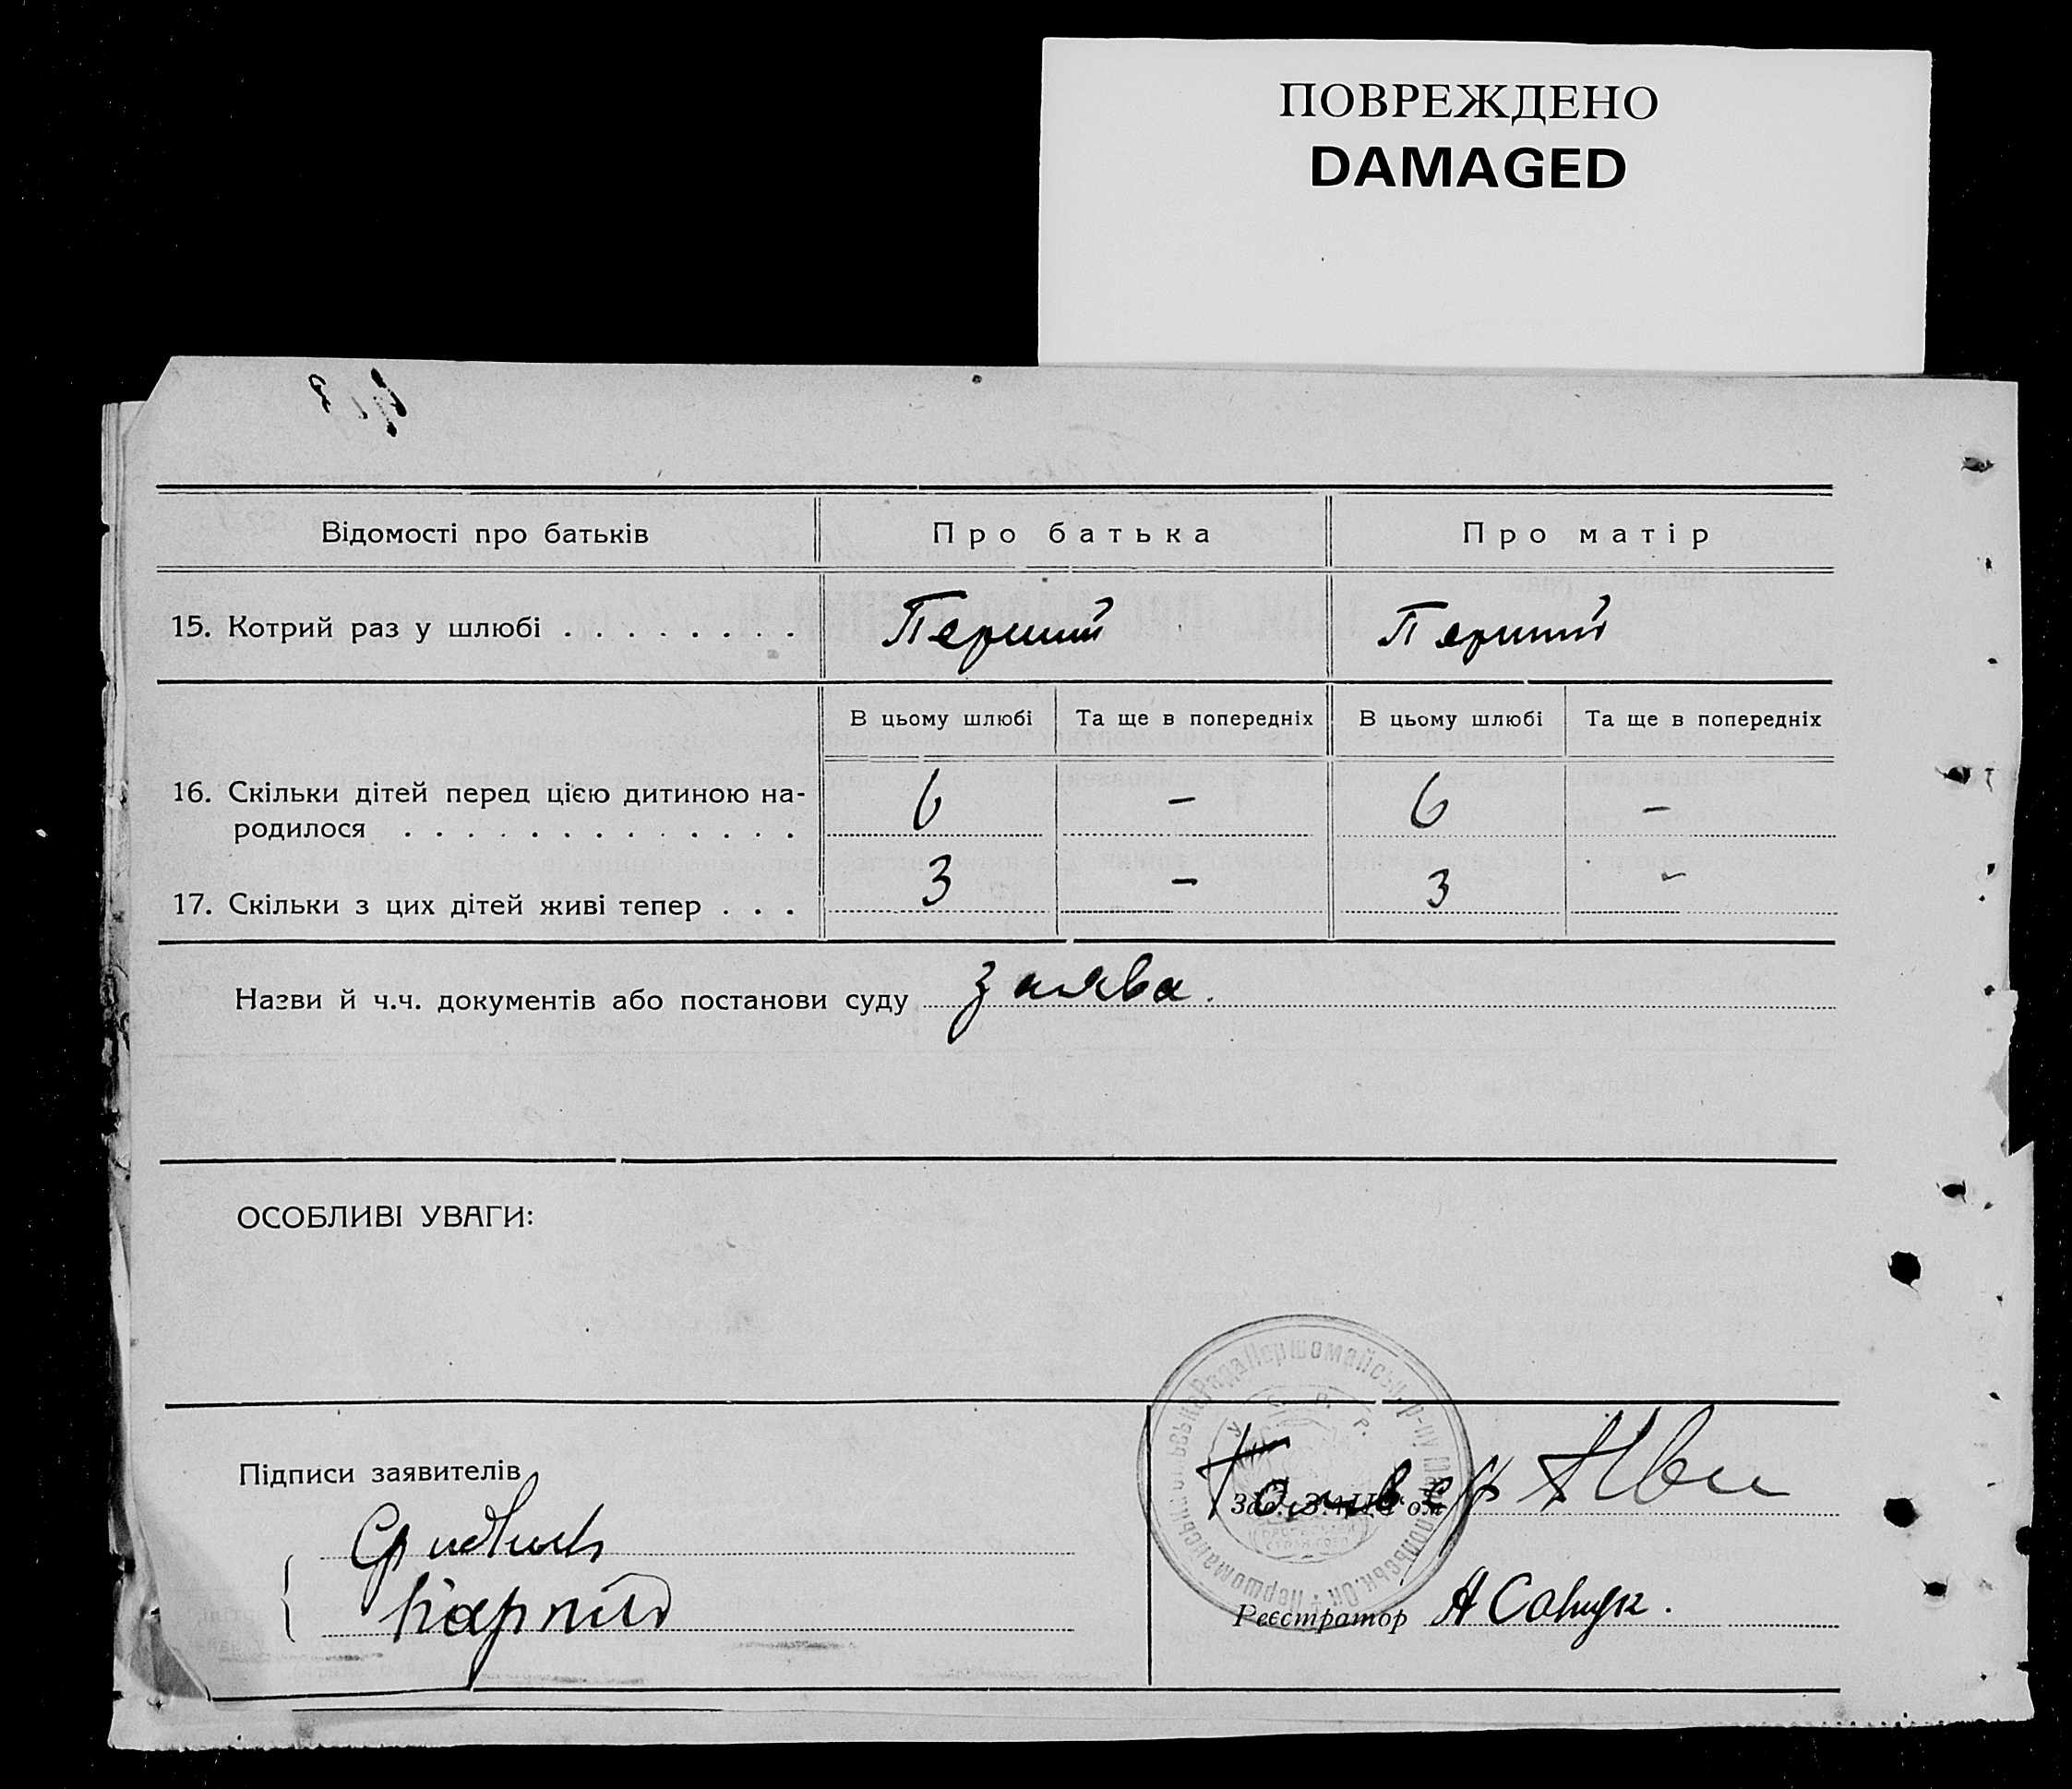 ПОВРЕЖДЕНО
DAMAGED
Відомості про батьків Про батька Про матір
15. Котрий раз у шлюбі . . . . . . . . Перший Перший
В цьому шлюбі Та ще в попередніх В цьому шлюбі Та ще в попередніх
16. Скільки дітей перед цією дитиною на-
родилося . . . . . . . . . . . . . . 6 – 6 –
17. Скільки з цих дітей живі тепер . . . 3 – 3 –
Назви й ч.ч. документів або постанови суду заява.
ОСОБЛИВІ УВАГИ:
Підписи заявителів
Зав. ЗАЦС'ом
Реєстратор А